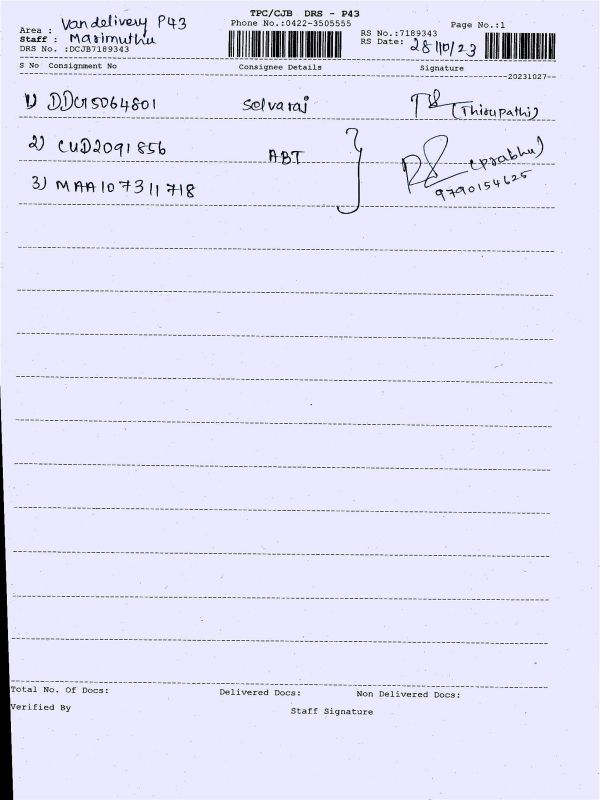 TPC/CJB DRS - P43
Area : Vandelivery P43
Phone No.:0422-3505555
Page No.:1
Staff : Marimuthu
RS No.:7189343
DRS No. :DCJB7189343
RS Date: 28/10/23
S No Consignment No Consignee Details Signature
20231027
1) DDG15064801 Selvaraj (Thirupathi)
2) CUD2091856 ABT (prabhu)
3) MAA107311718 9790154625
Total No. Of Docs: Delivered Docs: Non Delivered Docs:
Verified By Staff Signature